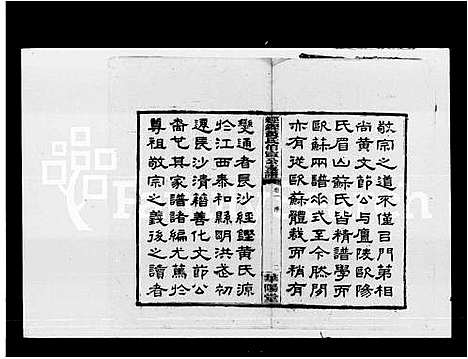 敬宗之道不僅曰門第相
尚黃文節公与廬陵歐陽
氏眉山蘇氏皆精譜學而
歐蘇兩譜岕式至今勝閒
亦有從歐蘇體裁而稍有
卷一 序
華陽堂
變通者長沙經鏗黃氏源
於江西泰和縣明洪武初
遷長沙清稻善化文節公
裔也其家譜諸編尤篤於
尊祖敬宗之義後之讀者